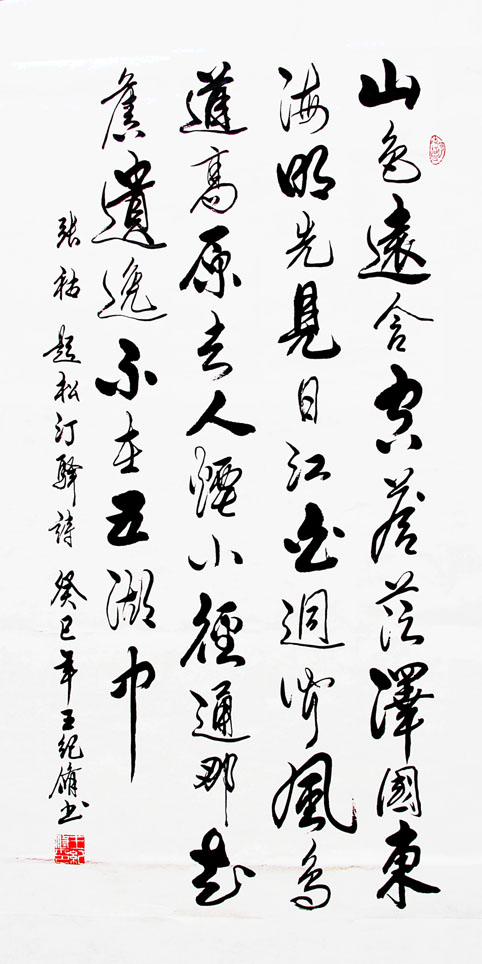 山色遠含空蒼茫澤國東
海明先見日江白迥聞風鳥
道高原去人煙小徑通那知
舊遺逸不在五湖中
張祜題松汀驛詩癸巳年王紀脩書